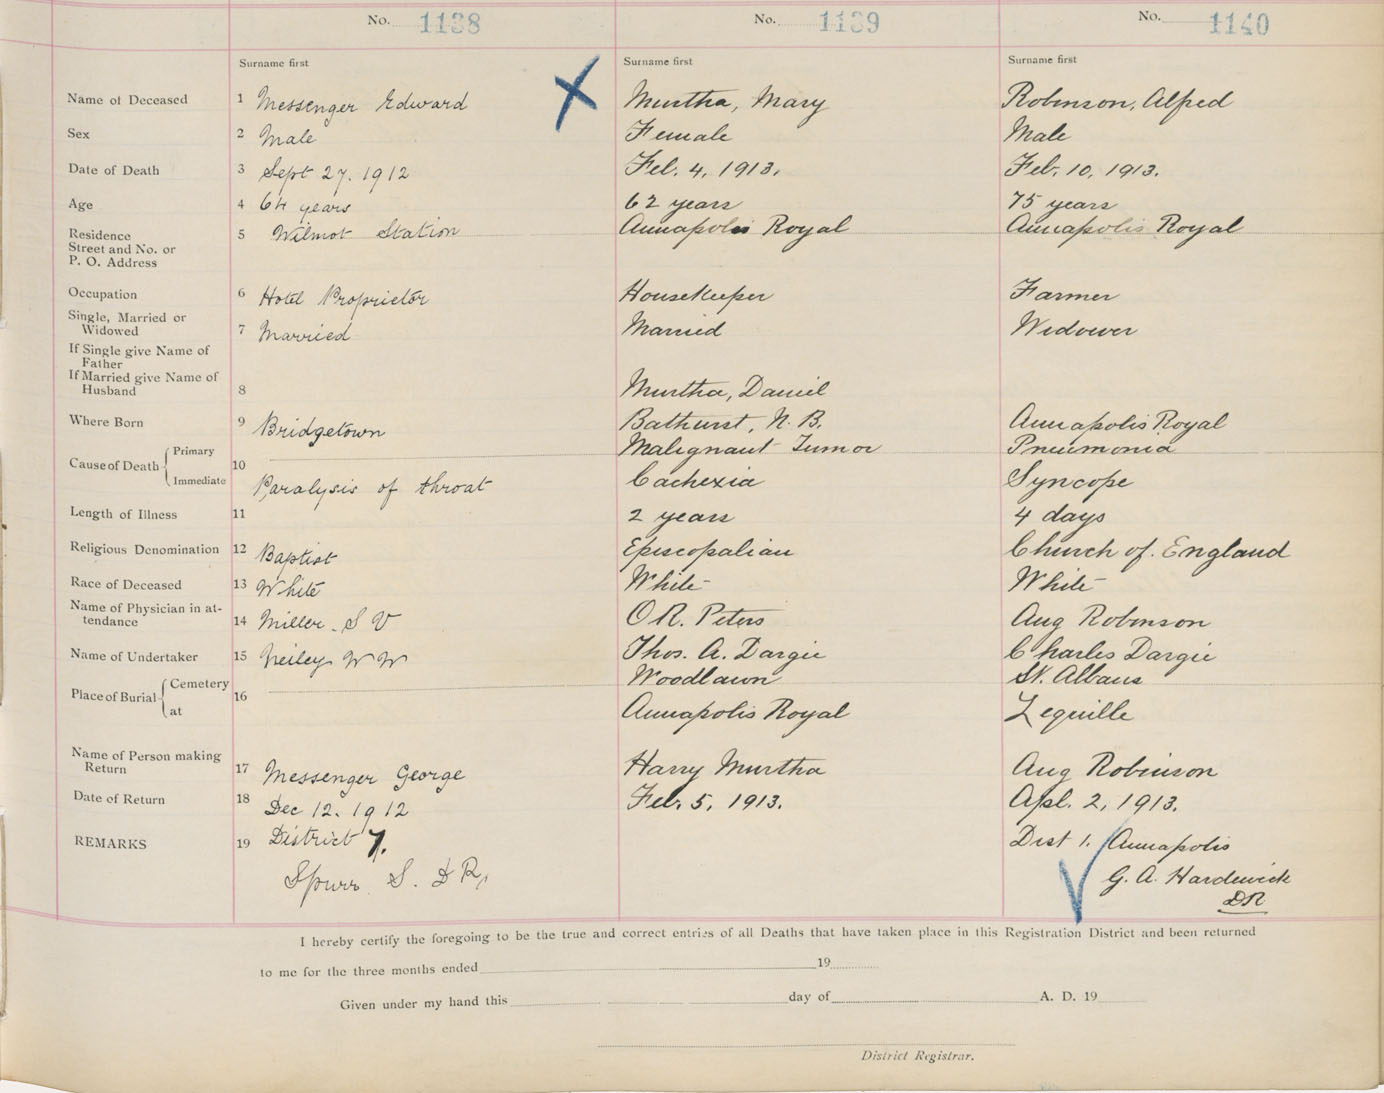 No. 1138 No. 1139 No. 1140
Surname first Surname first Surname first
Name of Deceased 1 Messenger Edward Murtha, Mary Robinson, Alfred
Sex 2 Male Female Male
Date of Death 3 Sept 27. 1912 Feb. 4, 1913. Feb. 10, 1913.
Age 4 64 years 62 years 75 years
Residence 5 Wilmot Station Annapolis Royal Annapolis Royal
Street and No. or
P. O. Address
Occupation 6 Hotel Proprietor Housekeeper Farmer
Single, Married or
Widowed 7 Married Married Widower
If Single give Name of
Father
If Married give Name of
Husband 8 Murtha, Daniel
Where Born 9 Bridgetown Bathurst, N. B. Annapolis Royal
Primary Malignant Tumor Pneumonia
Cause of Death 10
Immediate Paralysis of throat Cachexia Syncope
Length of Illness 11 2 years 4 days
Religious Denomination 12 Baptist Episcopalian Church of. England
Race of Deceased 13 White White White
Name of Physician in at-
tendance 14 Miller. S V O R. Peters Aug Robinson
Name of Undertaker 15 Neiley W W Thos. A. Dargie Charles Dargie
Cemetery Woodlawn St. Albans
Place of Burial 16
at Annapolis Royal Lequille
Name of Person making
Return 17 Messenger George Harry Murtha Aug Robinson
Date of Return 18 Dec 12. 1912 Feb. 5, 1913. Apl. 2, 1913.
REMARKS 19 District 7. Dist 1. Annapolis
Spurr S. D R, G. A. Hardwick
DR
I hereby certify the foregoing to be the true and correct entries of all Deaths that have taken place in this Registration District and been returned
to me for the three months ended 19
Given under my hand this day of A. D. 19
District Registrar.